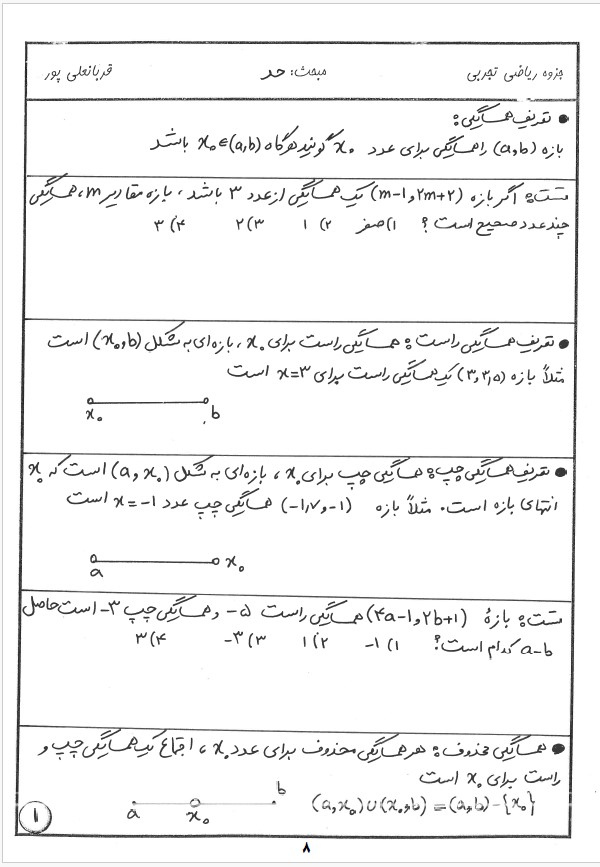 جزوه ریاضی تجربی مبحث: حد قربانعلی پور
● تعریف همسایگی:
بازه (a,b) را همسایگی برای عدد x₀ گویند هرگاه x₀∈(a,b) باشد
تست: اگر بازه (m-1,۲m+۲) یک همسایگی از عدد ۳ باشد، بازه مقادیر m، همسایگی
چند عدد صحیح است؟ ۱) صفر ۲) ۱ ۳) ۲ ۴) ۳
● تعریف همسایگی راست: همسایگی راست برای x₀، بازه‌ای به شکل (x₀,b) است
مثلاً بازه (۳,۳٫۵) یک همسایگی راست برای x=۳ است
x₀ b
● تعریف همسایگی چپ: همسایگی چپ برای x₀، بازه‌ای به شکل (a,x₀) است که x₀
انتهای بازه است. مثلاً بازه (-۱٫۷,-۱) همسایگی چپ عدد x=-۱ است
a x₀
تست: بازهٔ (۴a-۱,۲b+۱) همسایگی راست ۵- و همسایگی چپ ۳- است حاصل
a-b کدام است؟ ۱) ۱- ۲) ۱ ۳) ۳- ۴) ۳
● همسایگی محذوف: هر همسایگی محذوف برای عدد x₀، اجتماع یک همسایگی چپ و
راست برای x₀ است
(a,x₀)∪(x₀,b)=(a,b)-{x₀} a x₀ b
۱
۸